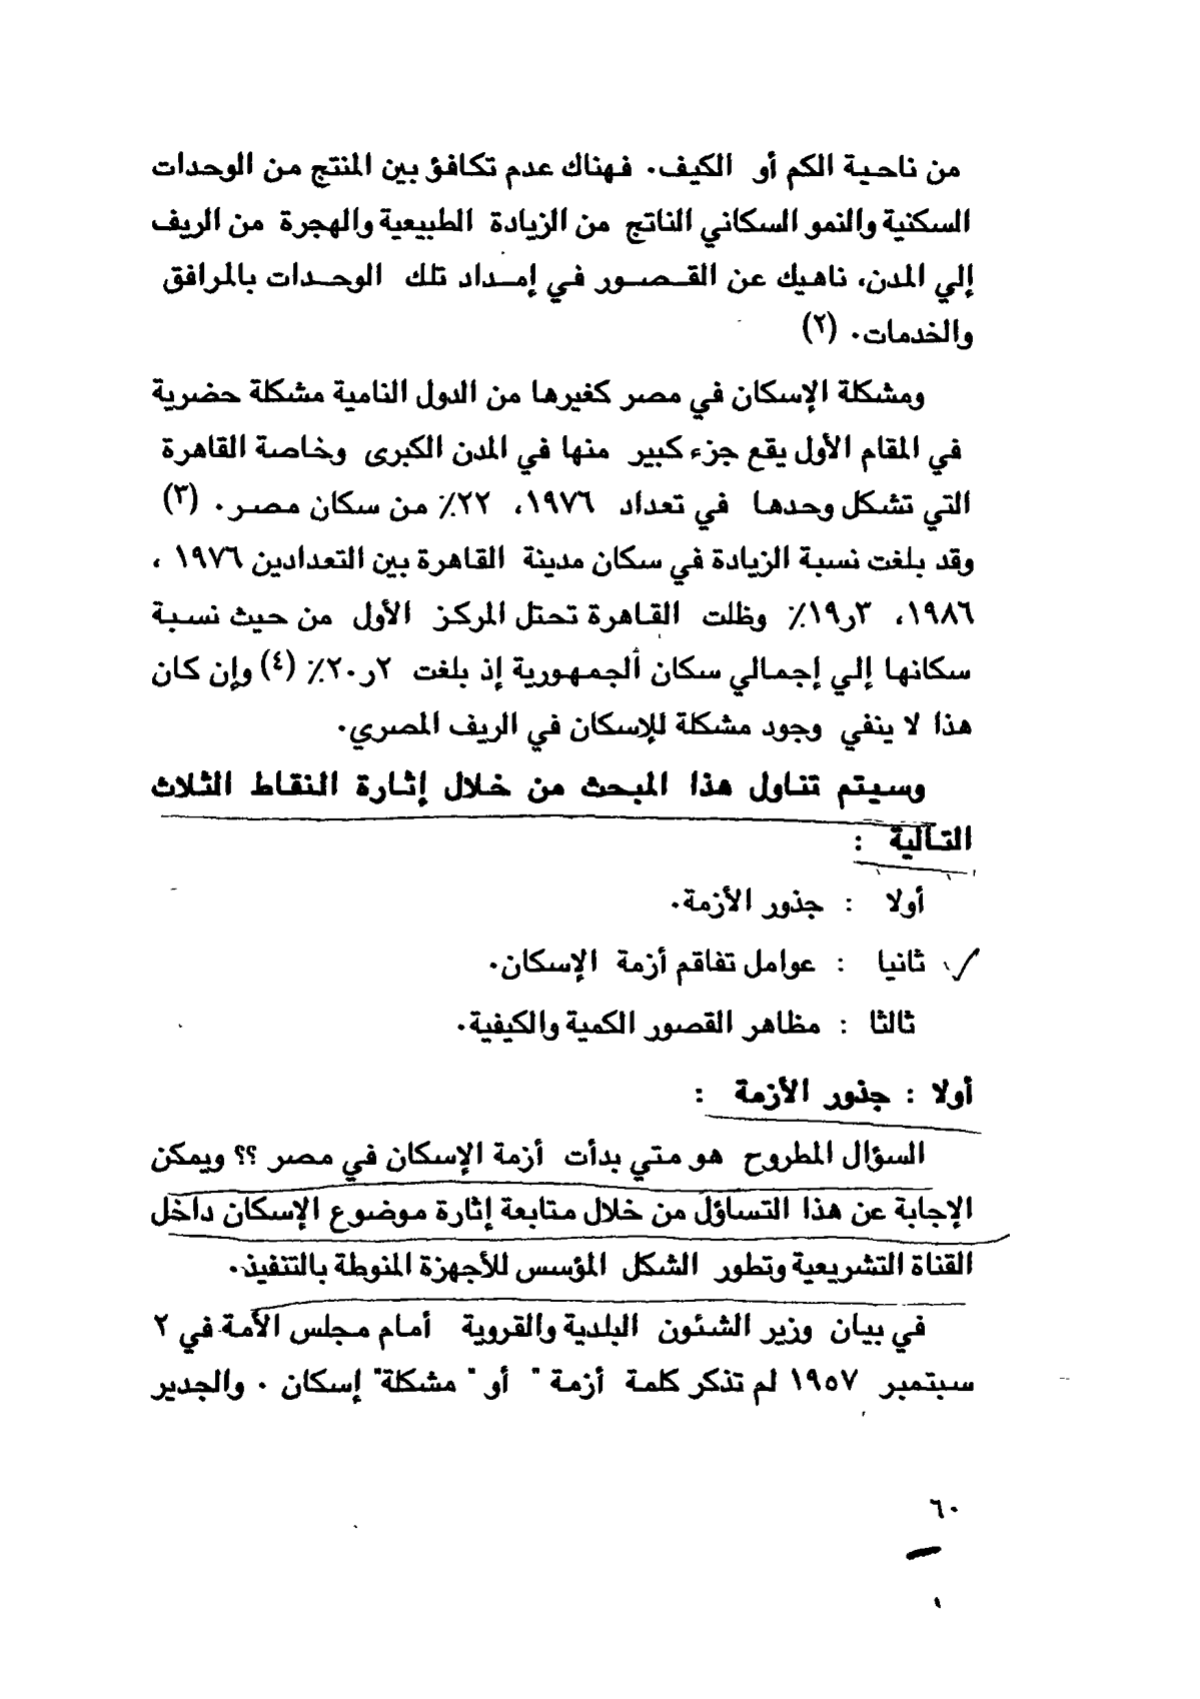 من ناحية الكم أو الكيف. فهناك عدم تكافؤ بين المنتج من الوحدات
السكنية والنمو السكاني الناتج من الزيادة الطبيعية والهجرة من الريف
إلي المدن، ناهيك عن القصور في إمداد تلك الوحدات بالمرافق
والخدمات. (٢)
ومشكلة الإسكان في مصر كغيرها من الدول النامية مشكلة حضرية
في المقام الأول يقع جزء كبير منها في المدن الكبرى وخاصة القاهرة
التي تشكل وحدها في تعداد ١٩٧٦، ٢٢٪ من سكان مصر. (٣)
وقد بلغت نسبة الزيادة في سكان مدينة القاهرة بين التعدادين ١٩٧٦ ،
١٩٨٦، ٣ر١٩٪ وظلت القاهرة تحتل المركز الأول من حيث نسبة
سكانها إلي إجمالي سكان ألجمهورية إذ بلغت ٢ر٢٠٪ (٤) وإن كان
هذا لا ينفي وجود مشكلة للإسكان في الريف المصري.
وسيتم تناول هذا المبحث من خلال إثارة النقاط الثلاث
التالية :
أولا : جذور الأزمة.
ثانيا : عوامل تفاقم أزمة الإسكان.
ثالثا : مظاهر القصور الكمية والكيفية.
أولا : جذور الأزمة :
السؤال المطروح هو متي بدأت أزمة الإسكان في مصر ؟؟ ويمكن
الإجابة عن هذا التساؤل من خلال متابعة إثارة موضوع الإسكان داخل
القناة التشريعية وتطور الشكل المؤسس للأجهزة المنوطة بالتنفيذ.
في بيان وزير الشئون البلدية والقروية أمام مجلس الأمة في ٢
سبتمبر ١٩٥٧ لم تذكر كلمة أزمة " أو " مشكلة" إسكان . والجدير
٦٠